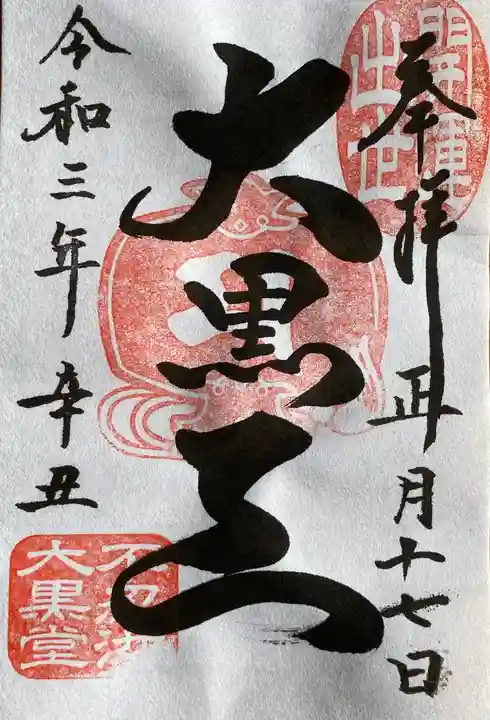 開運
出世
奉拝 正月十七日
大黒天
令和三年辛丑
不忍池
大黒堂